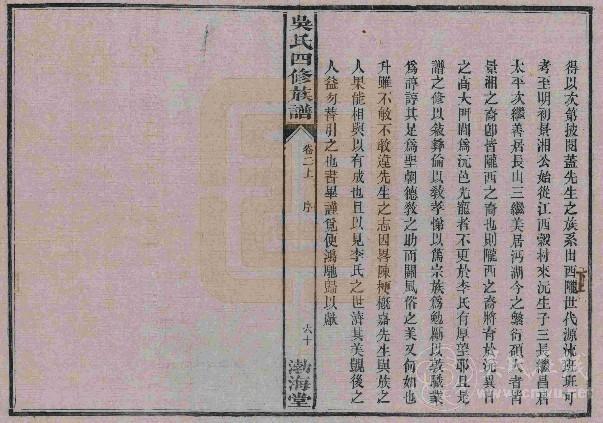 得以次第披閱蓋先生之族系由西隴世代源流班班可
考至明初景湘公始從江西穀村來沅生子三長繼昌居
太平次繼善居長山三繼美居河湖今之繁衍碩大者皆
景湘之裔卽皆隴西之裔也則隴西之裔將有於沅異
之高大門閭爲沅邑光寵者不更於李氏有厚望耶且是
譜之修以敘彝倫以敎孝悌以爲宗族爲勉勵以敦職業
爲諄諄其足爲聖朝德敎之助而關風俗之美又何如也
升雖不敏不敢違先生之志因畧陳梗槪嘉先生與族之
人果能相與以有成也且以見李氏之世濟其美覬後之
人益勿替引之也書畢謹覓使鴻馳歸以獻
吳氏四修族譜
卷二上 序
六十
渤海堂